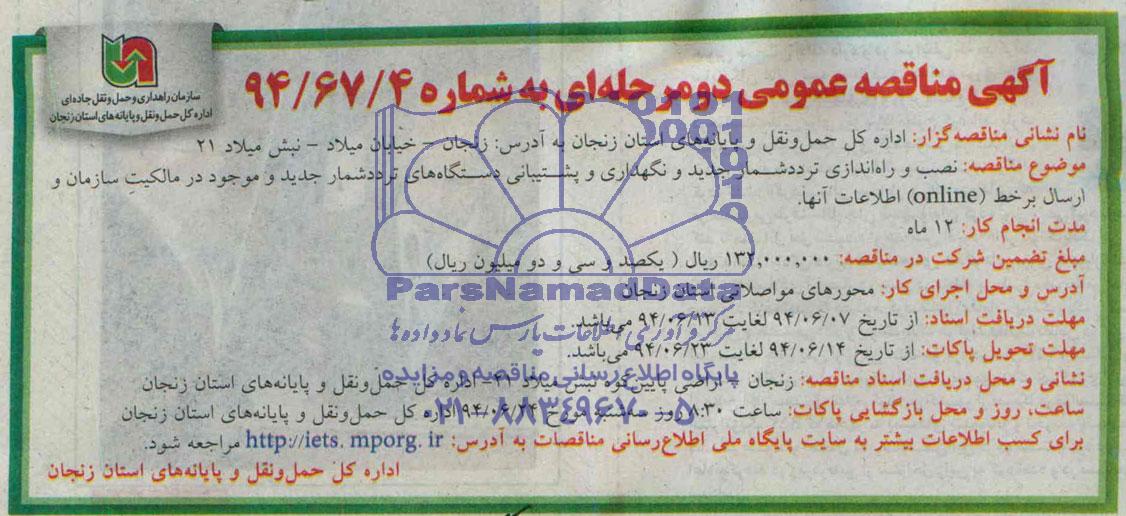 سازمان راهداری و حمل و نقل جاده‌ای
اداره کل حمل و نقل و پایانه‌های استان زنجان
آگهی مناقصه عمومی دو مرحله‌ای به شماره ۹۴/۶۷/۴
نام نشانی مناقصه‌گزار: اداره کل حمل‌ونقل و پایانه‌های استان زنجان به آدرس: زنجان – خیابان میلاد – نبش میلاد ۲۱
موضوع مناقصه: نصب و راه‌اندازی ترددشمار جدید و نگهداری و پشتیبانی دستگاه‌های ترددشمار جدید و موجود در مالکیت سازمان و
ارسال برخط (online) اطلاعات آنها.
مدت انجام کار: ۱۲ ماه
مبلغ تضمین شرکت در مناقصه: ۱۳۲,۰۰۰,۰۰۰ ریال ( یکصد و سی و دو میلیون ریال)
آدرس و محل اجرای کار: محورهای مواصلاتی استان زنجان
مهلت دریافت اسناد: از تاریخ ۹۴/۰۶/۰۷ لغایت ۹۴/۰۶/۱۳ می‌باشد.
مهلت تحویل پاکات: از تاریخ ۹۴/۰۶/۱۴ لغایت ۹۴/۰۶/۲۳ می‌باشد.
نشانی و محل دریافت اسناد مناقصه: زنجان – اراضی پایین کوه نبش میلاد ۲۱– اداره کل حمل‌ونقل و پایانه‌های استان زنجان
ساعت، روز و محل بازگشایی پاکات: ساعت ۸:۳۰ روز سه‌شنبه مورخ ۹۴/۰۶/۲۴ اداره کل حمل‌ونقل و پایانه‌های استان زنجان
برای کسب اطلاعات بیشتر به سایت پایگاه ملی اطلاع‌رسانی مناقصات به آدرس: http://iets.mporg.ir مراجعه شود.
اداره کل حمل‌ونقل و پایانه‌های استان زنجان
ParsNamadData
مرکز فرآوری اطلاعات پارس نماد داده‌ها
پایگاه اطلاع رسانی مناقصه و مزایده
۰۲۱-۸۸۳۴۹۶۷۰-۵